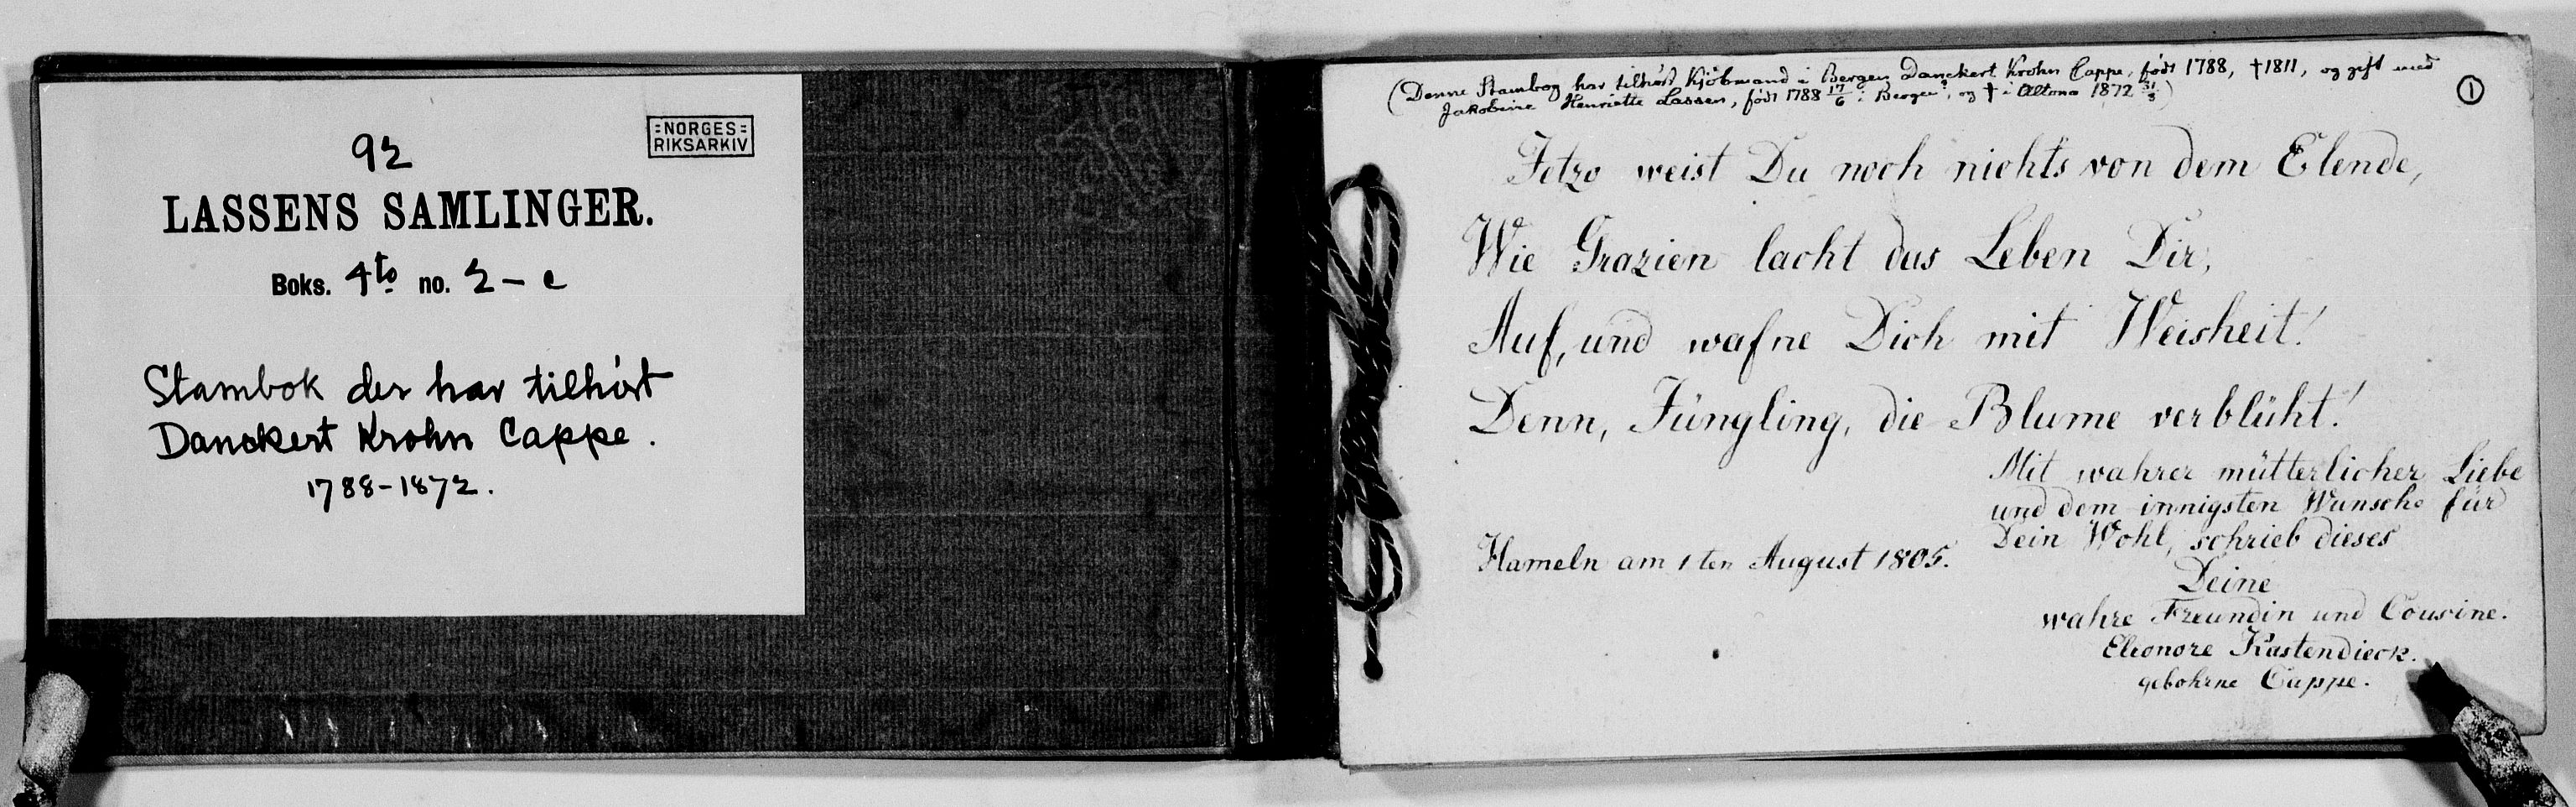 92
:NORGES:
RIKSARKIV
LASSENS SAMLINGER.
Boks. 4to no. 2 – c
Stambok der har tilhört
Danckert Krohn Cappe.
1788-1872.
(Denne Stambog har tilhørt Kjöbmand i Bergen Danckert Krohn Cappe, født 1788, †1811, og gift med
Jakobine Henriette Lassen, født 1788 17/6 i Bergen, og † i Altona 1872 31/3)
1
Jetzo weist Du noch nichts von dem Elende,
Wie Grazien lacht das Leben Dir,
Auf, und wafne Dich mit Weisheit!
Denn, Jüngling, die Blume verblüht!
Mit wahrer mütterlicher Liebe
und dem innigsten Wunsche für
Dein Wohl, schrieb dieses
Hameln am 1ten August 1805.
Deine
wahre Freundin und Cousine.
Eleonore Kastendieck.
gebohrne Cappe.